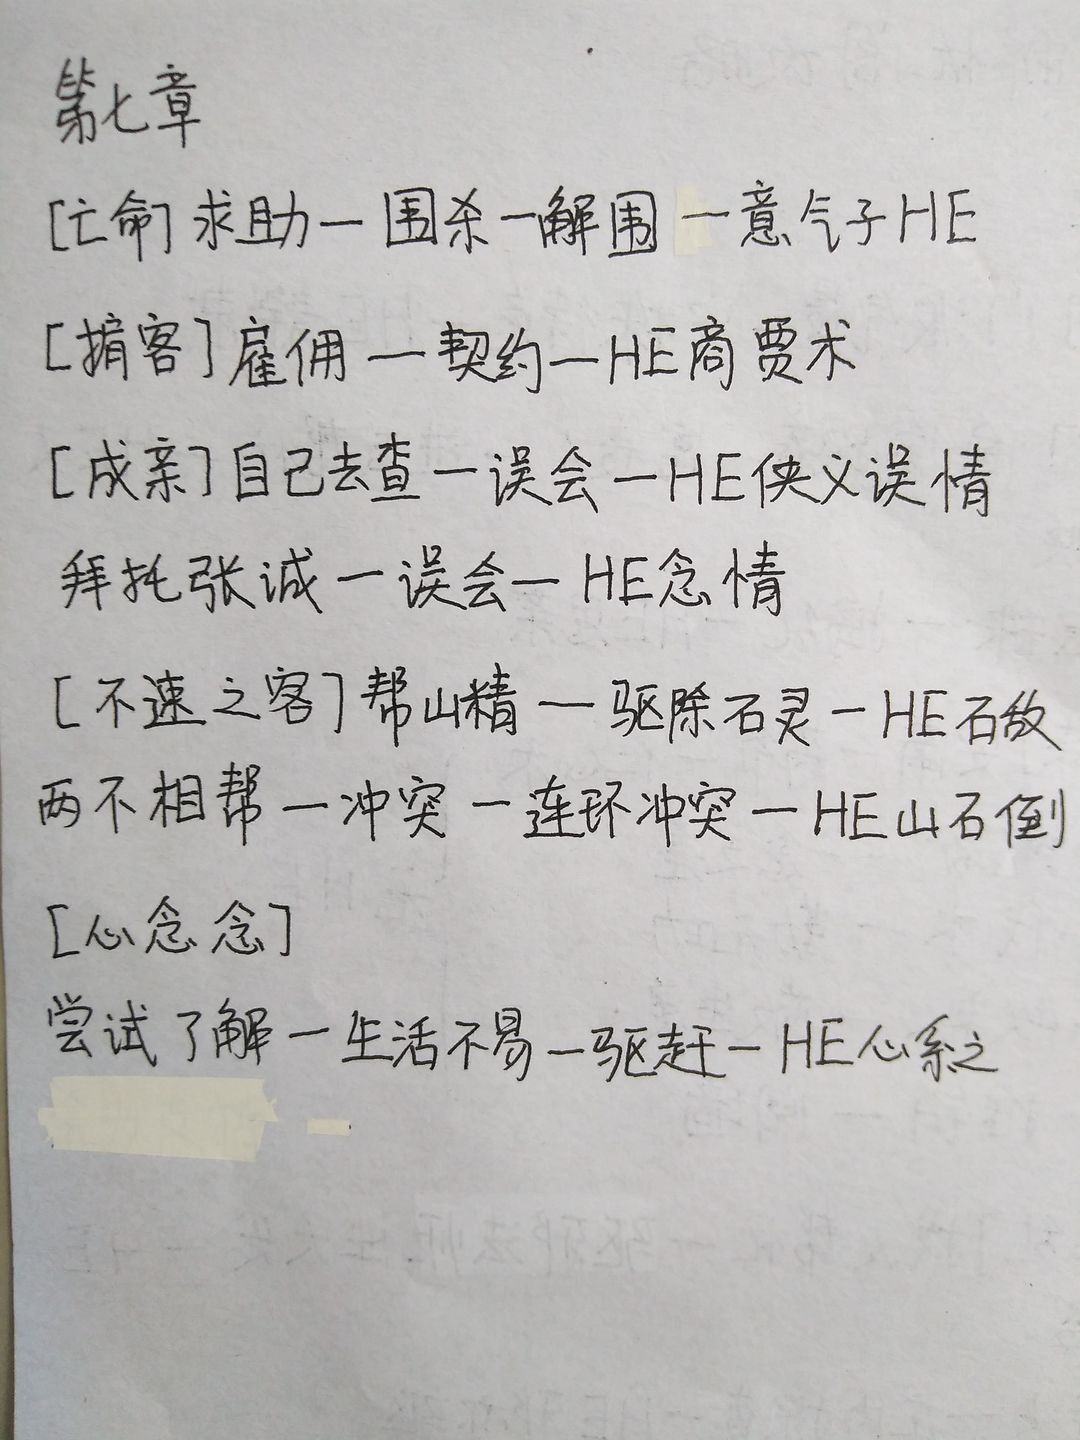 第七章
[亡命] 求助一围杀一解围 一意气子HE
[掮客] 雇佣 一契约一HE商贾术
[成亲] 自己去查一误会一HE侠义误情
拜托张诚一误会一HE念情
[不速之客] 帮山精一驱除石灵一HE石敌
两不相帮一冲突一连环冲突一HE山石倒
[心念念]
尝试了解一生活不易一驱赶一HE心系之